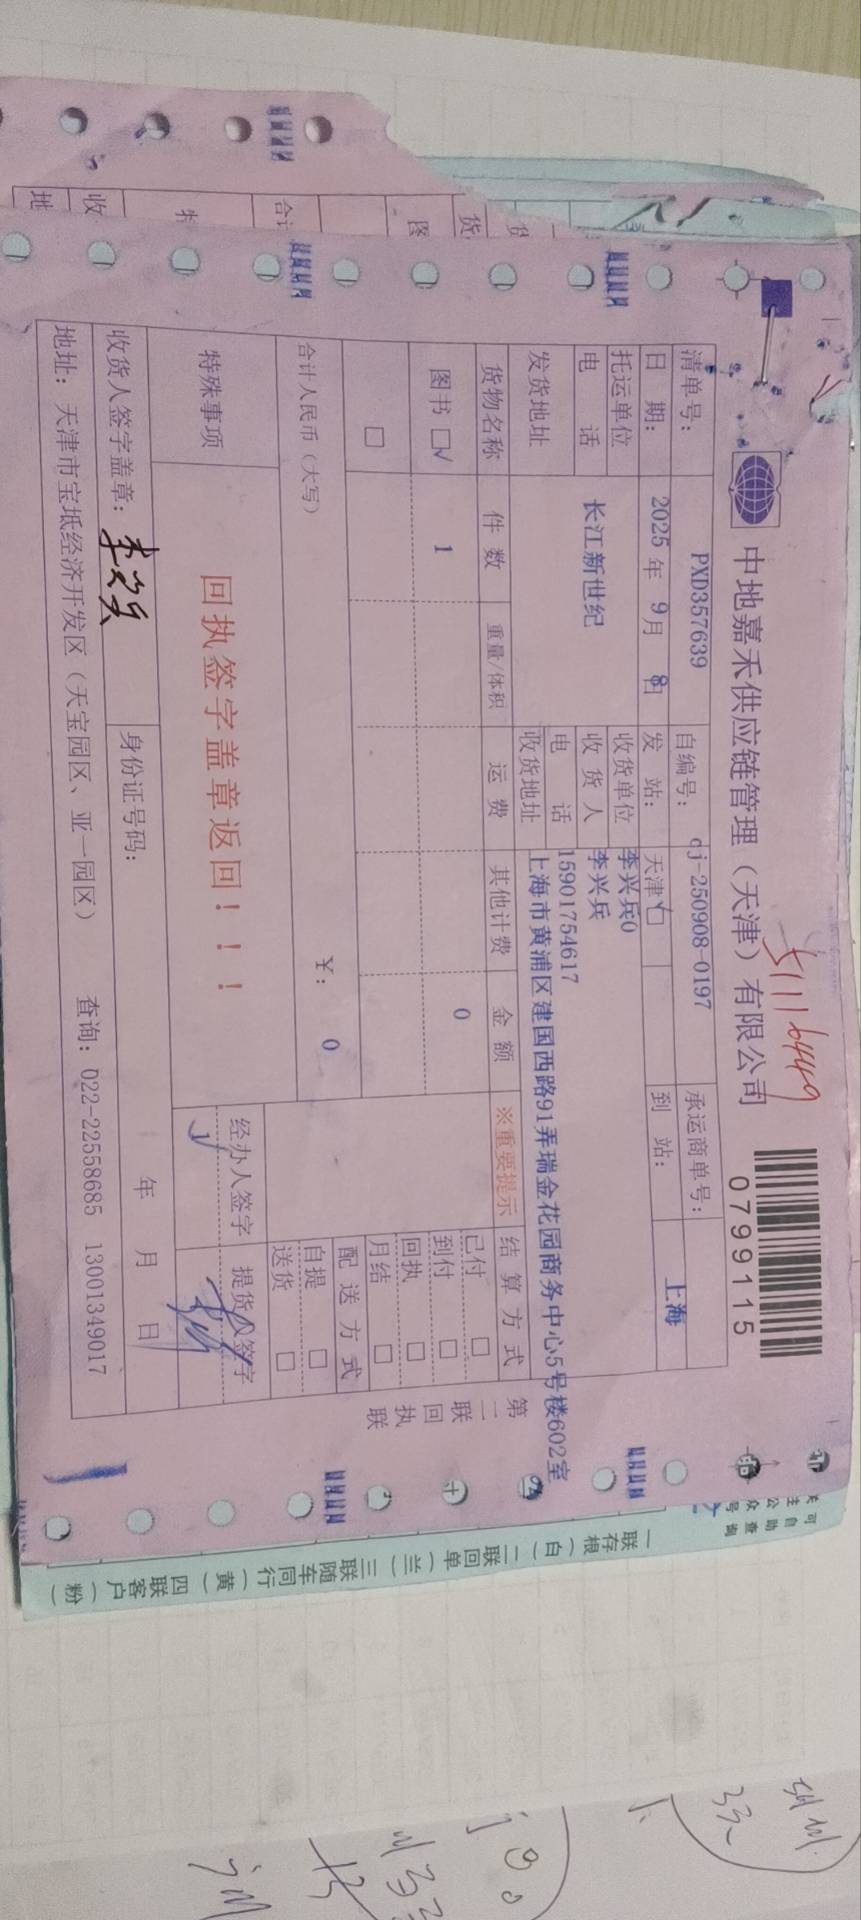 中地嘉禾供应链管理（天津）有限公司
0799115
清单号： PXD357639 自编号： cj-250908-0197 承运商单号：
日 期： 2025 年 9 月 8日 发 站： 天津 到 站： 上海
托运单位 长江新世纪 收货单位 李兴兵0
收 货 人 李兴兵
电 话 电 话 15901754617
发货地址 收货地址 上海市黄浦区建国西路91弄瑞金花园商务中心5号楼602室
货物名称 件 数 重量/体积 运 费 其他计费 金 额 ※重要提示 结 算 方 式
图书 □√ 1 0 已付 □
到付 □
回执 □
月结 □
□
合计人民币（大写） ￥： 0
配 送 方 式
自提 □
送货 □
特殊事项 回执签字盖章返回！！！ 经办人签字 提货人签字
收货人签字盖章： 李兴兵 身份证号码： 年 月 日
地址：天津市宝坻经济开发区（天宝园区、亚一园区） 查询：022-22558685 13001349017
第二联 回执联
可自助查询
关注公众号
一联存根（白）二联回单（兰）三联随车同行（黄）四联客户（粉）